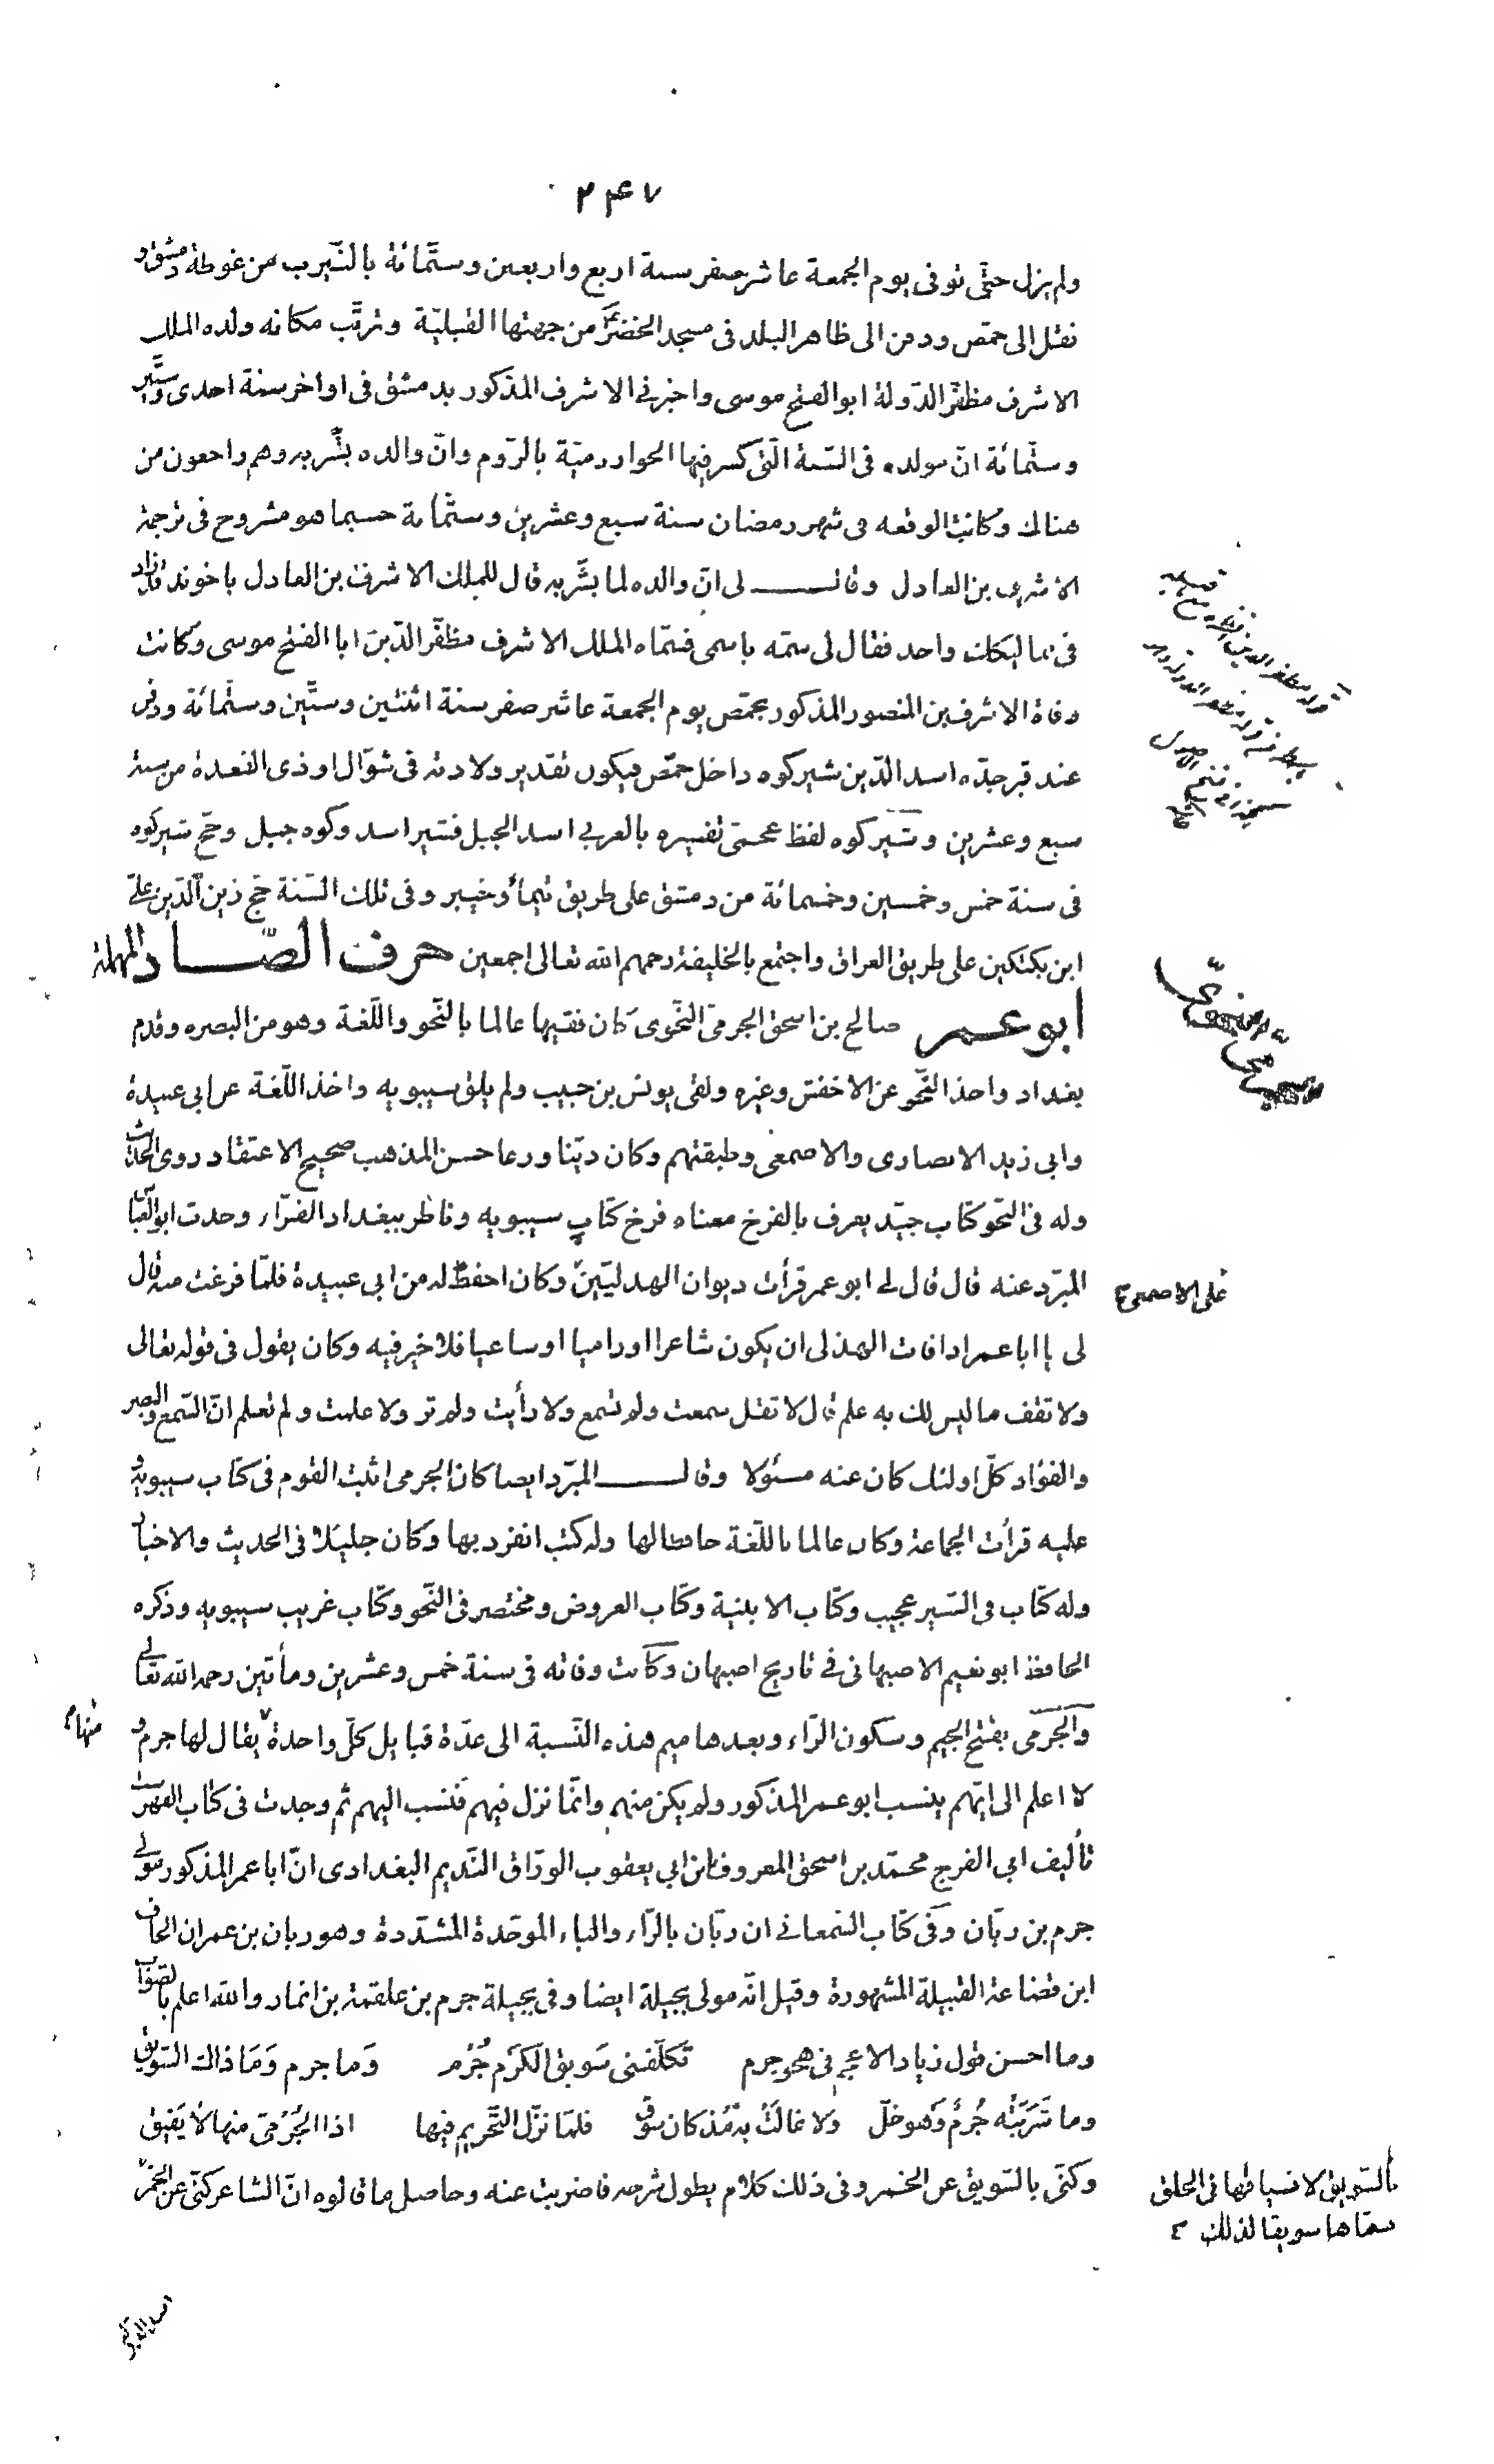 ٢٤٧
ولم يزل حتّى توفى يوم الجمعة عاشر صفر سنة اربع واربعين وستّمائة بالنّيرب من غوطة دمشق و
نقل الى حمص ودفن الى ظاهر البلد فى مسجد الخضر من جهتها القبليّة وترتّب مكانه ولده الملك
الاشرف مظفّر الدّولة ابو الفتح موسى واخبرنى الاشرف المذكور بدمشق فى اواخر سنة احدى وستّين
وستّمائة انّ مولده فى السّنة الّتى كسر فيها الخوارزميّة بالرّوم وانّ والده بشّر به وهم راجعون من
هناك وكانت الوقعه فى شهر رمضان سنة سبع وعشرين وستّماية حسبما هو مشروح فى ترجمة
الاشرف بن العادل وقال لى انّ والده لما بشّر به قال للملك الاشرف بن العادل ياخوند قد زاد
فى مماليكك واحد فقال لى سمّه باسمى فسمّاه الملك الاشرف مظفّر الدّين ابا الفتح موسى وكانت
وفاة الاشرف بن المنصور المذكور بحمص يوم الجمعة عاشر صفر سنة اثنتين وستّين وستّمائة ودفن
عند قبر جدّه اسد الدّين شيركوه داخل حمص فيكون تقدير ولادته فى شوّال او ذى القعدة من سنة
سبع وعشرين وشيركوه لفظ عجمىّ تفسيره بالعربى اسد الجبل فشير اسد وكوه جبل وحجّ شيركوه
فى سنة خمس وخمسين وخمسمائة من دمشق على طريق تيماء وخيبر وفى تلك السّنة حجّ زين الدّين علىّ
ابن بكتكين على طريق العراق واجتمع بالخليفة رحمهم الله تعالى اجمعين حرف الصّاد المهملة
ابو عمر صالح بن اسحق الجرمىّ النّحوى كان فقيها عالما بالنّحو واللّغة وهو من البصره وقدم
بغداد واخذ النّحو عن الاخفش وغيره ولقى يونس بن حبيب ولم يلق سيبويه واخذ اللّغة عن ابى عبيدة
وابى زيد الانصارى والاصمعى وطبقتهم وكان ديّنا ورعا حسن المذهب صحيح الاعتقاد روى الحديث
وله فى النّحو كتاب جيّد يعرف بالفرخ معناه فرخ كتاب سيبويه وناظر ببغداد الفرّاء وحدث ابو العبّاس
المبرّد عنه قال قال لى ابو عمر قرأت ديوان الهذليّين وكان احفظ له من ابى عبيدة فلمّا فرغت منه قال
على الاصمعى
لى يا ابا عمر اذا فات الهذلى ان يكون شاعرا او راميا او ساعيا فلا خير فيه وكان يقول فى قوله تعالى
ولا تقف ما ليس لك به علم قال لا تقل سمعت ولم تسمع ولا رأيت ولم تر ولا علمت ولم تعلم انّ السّمع والبصر
والفؤاد كلّ اولئك كان عنه مسئولا وقال المبرّد ايضا كان الجرمى اثبت القوم فى كتاب سيبويه و
عليه قرأت الجماعة وكان عالما باللّغة حافظا لها وله كتب انفرد بها وكان جليلا فى الحديث والاخبار
وله كتاب فى السّير عجيب وكتاب الابنية وكتاب العروض ومختصر فى النّحو وكتاب غريب سيبويه وذكره
الحافظ ابو نعيم الاصبهانى فى تاريخ اصبهان وكانت وفاته فى سنة خمس وعشرين ومأتين رحمه الله تعالى
والجرمى بفتح الجيم وسكون الرّاء وبعدها ميم هذه النّسبة الى عدّة قبايل كلّ واحدة يقال لها جرم و
منها
لا اعلم الى ايّهم ينسب ابو عمر المذكور ولم يكن منهم وانّما نزل فيهم فنسب اليهم ثم وجدت فى كتاب الفهرست
تأليف ابى الفرج محمّد بن اسحق المعروف بابن ابى يعقوب الورّاق النّديم البغدادى انّ ابا عمر المذكور مولى
جرم بن ربّان وفى كتاب السّمعانى ان ربّان بالرّاء والباء الموحّدة المشدّدة وهو ربان بن عمران الحاف
ابن قضاعة القبيلة المشهورة وقيل انّه مولى بجيلة ايضا وفى بجيلة جرم بن علقمة بن انمار والله اعلم بالصّواب
وما احسن قول زياد الاعجم فى هجو جرم تكلّفنى سَويق الكَرْم جُرْم وَما جرم وَمَا ذاك السّويق
وما شَرِبَتْه جُرمٌ وَهو حلّ وَلا غالَتْ به مُذ كان سوق فلمّا نزّل التّحريم فيها اذا الجَرْمىّ منها لا يَفيق
وكنّى بالسّويق عن الخمر وفى ذلك كلام يطول شرحه فاضربت عنه وحاصل ما قالوه انّ الشاعر كنّى عن الخمر
بالسّويق لانسياقها فى الحلق
سمّاها سويقا لذلك